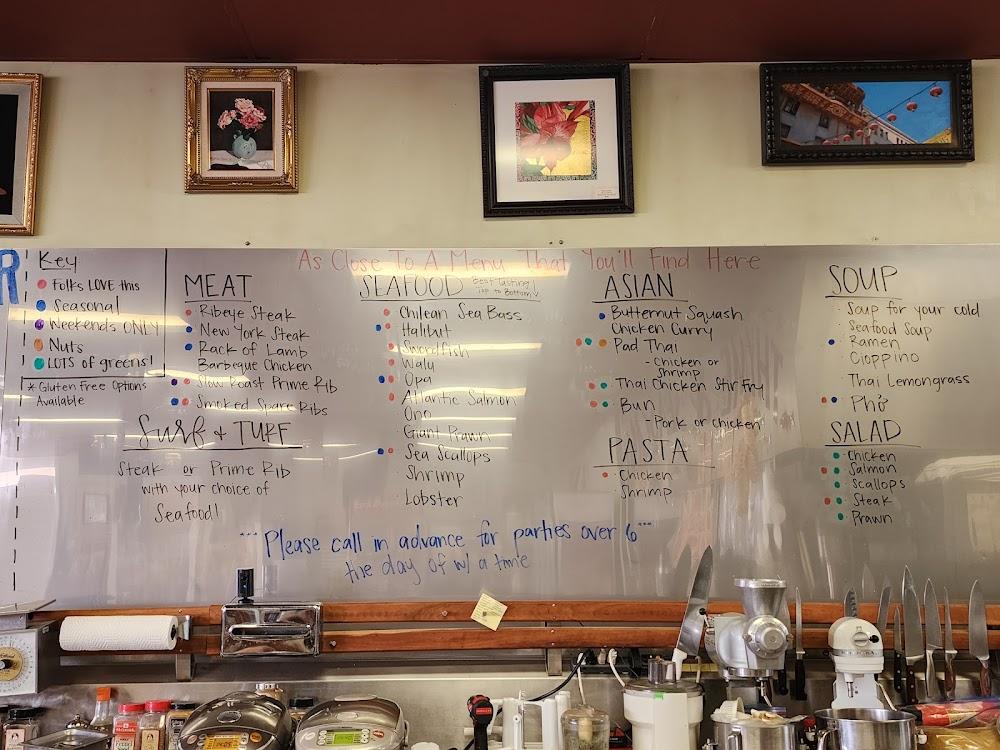 R
Key
Folks LOVE this
Seasonal
Weekends ONLY
Nuts
LOTS of greens!
* Gluten Free Options
Available
As Close To A Menu That You'll Find Here
MEAT
Ribeye Steak
New York Steak
Rack of Lamb
Barbeque Chicken
Slow Roast Prime Rib
Smoked Spare Ribs
Surf & TURF
Steak or Prime Rib
with your choice of
Seafood!
SEAFOOD
Best Tasting!
Top to Bottom
Chilean Sea Bass
Halibut
Swordfish
Walu
Opa
Atlantic Salmon
Ono
Giant Prawn
Sea Scallops
Shrimp
Lobster
ASIAN
Butternut Squash
Chicken Curry
Pad Thai
- Chicken or
Shrimp
Thai Chicken Stir Fry
Bun
- Pork or Chicken
PASTA
Chicken
Shrimp
SOUP
Soup for your cold
Seafood Soup
Ramen
Cioppino
Thai Lemongrass
Phở
SALAD
Chicken
Salmon
Scallops
Steak
Prawn
*** Please call in advance for parties over 6 ***
the day of w/ a time